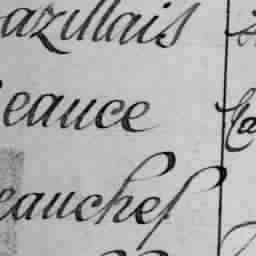 azillais
eauce
eauchef